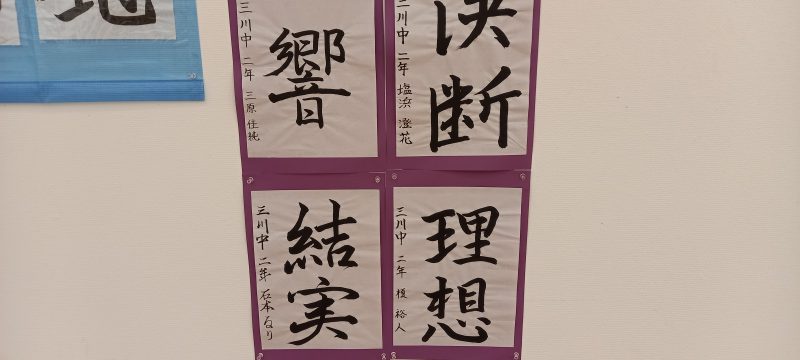 決断
三川中 二年 塩浜 澄花
響
三川中 二年 三原 佳純
理想
三川中 二年 榎 裕人
結実
三川中 二年 石本 るり
地